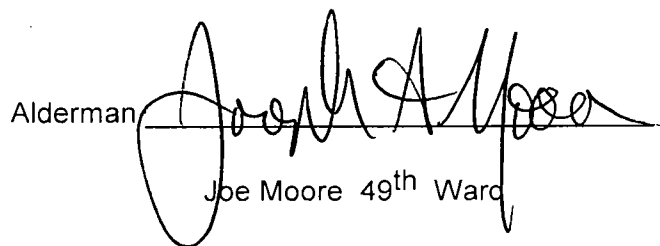 Alderman Joseph A Moore
Joe Moore 49th Ward